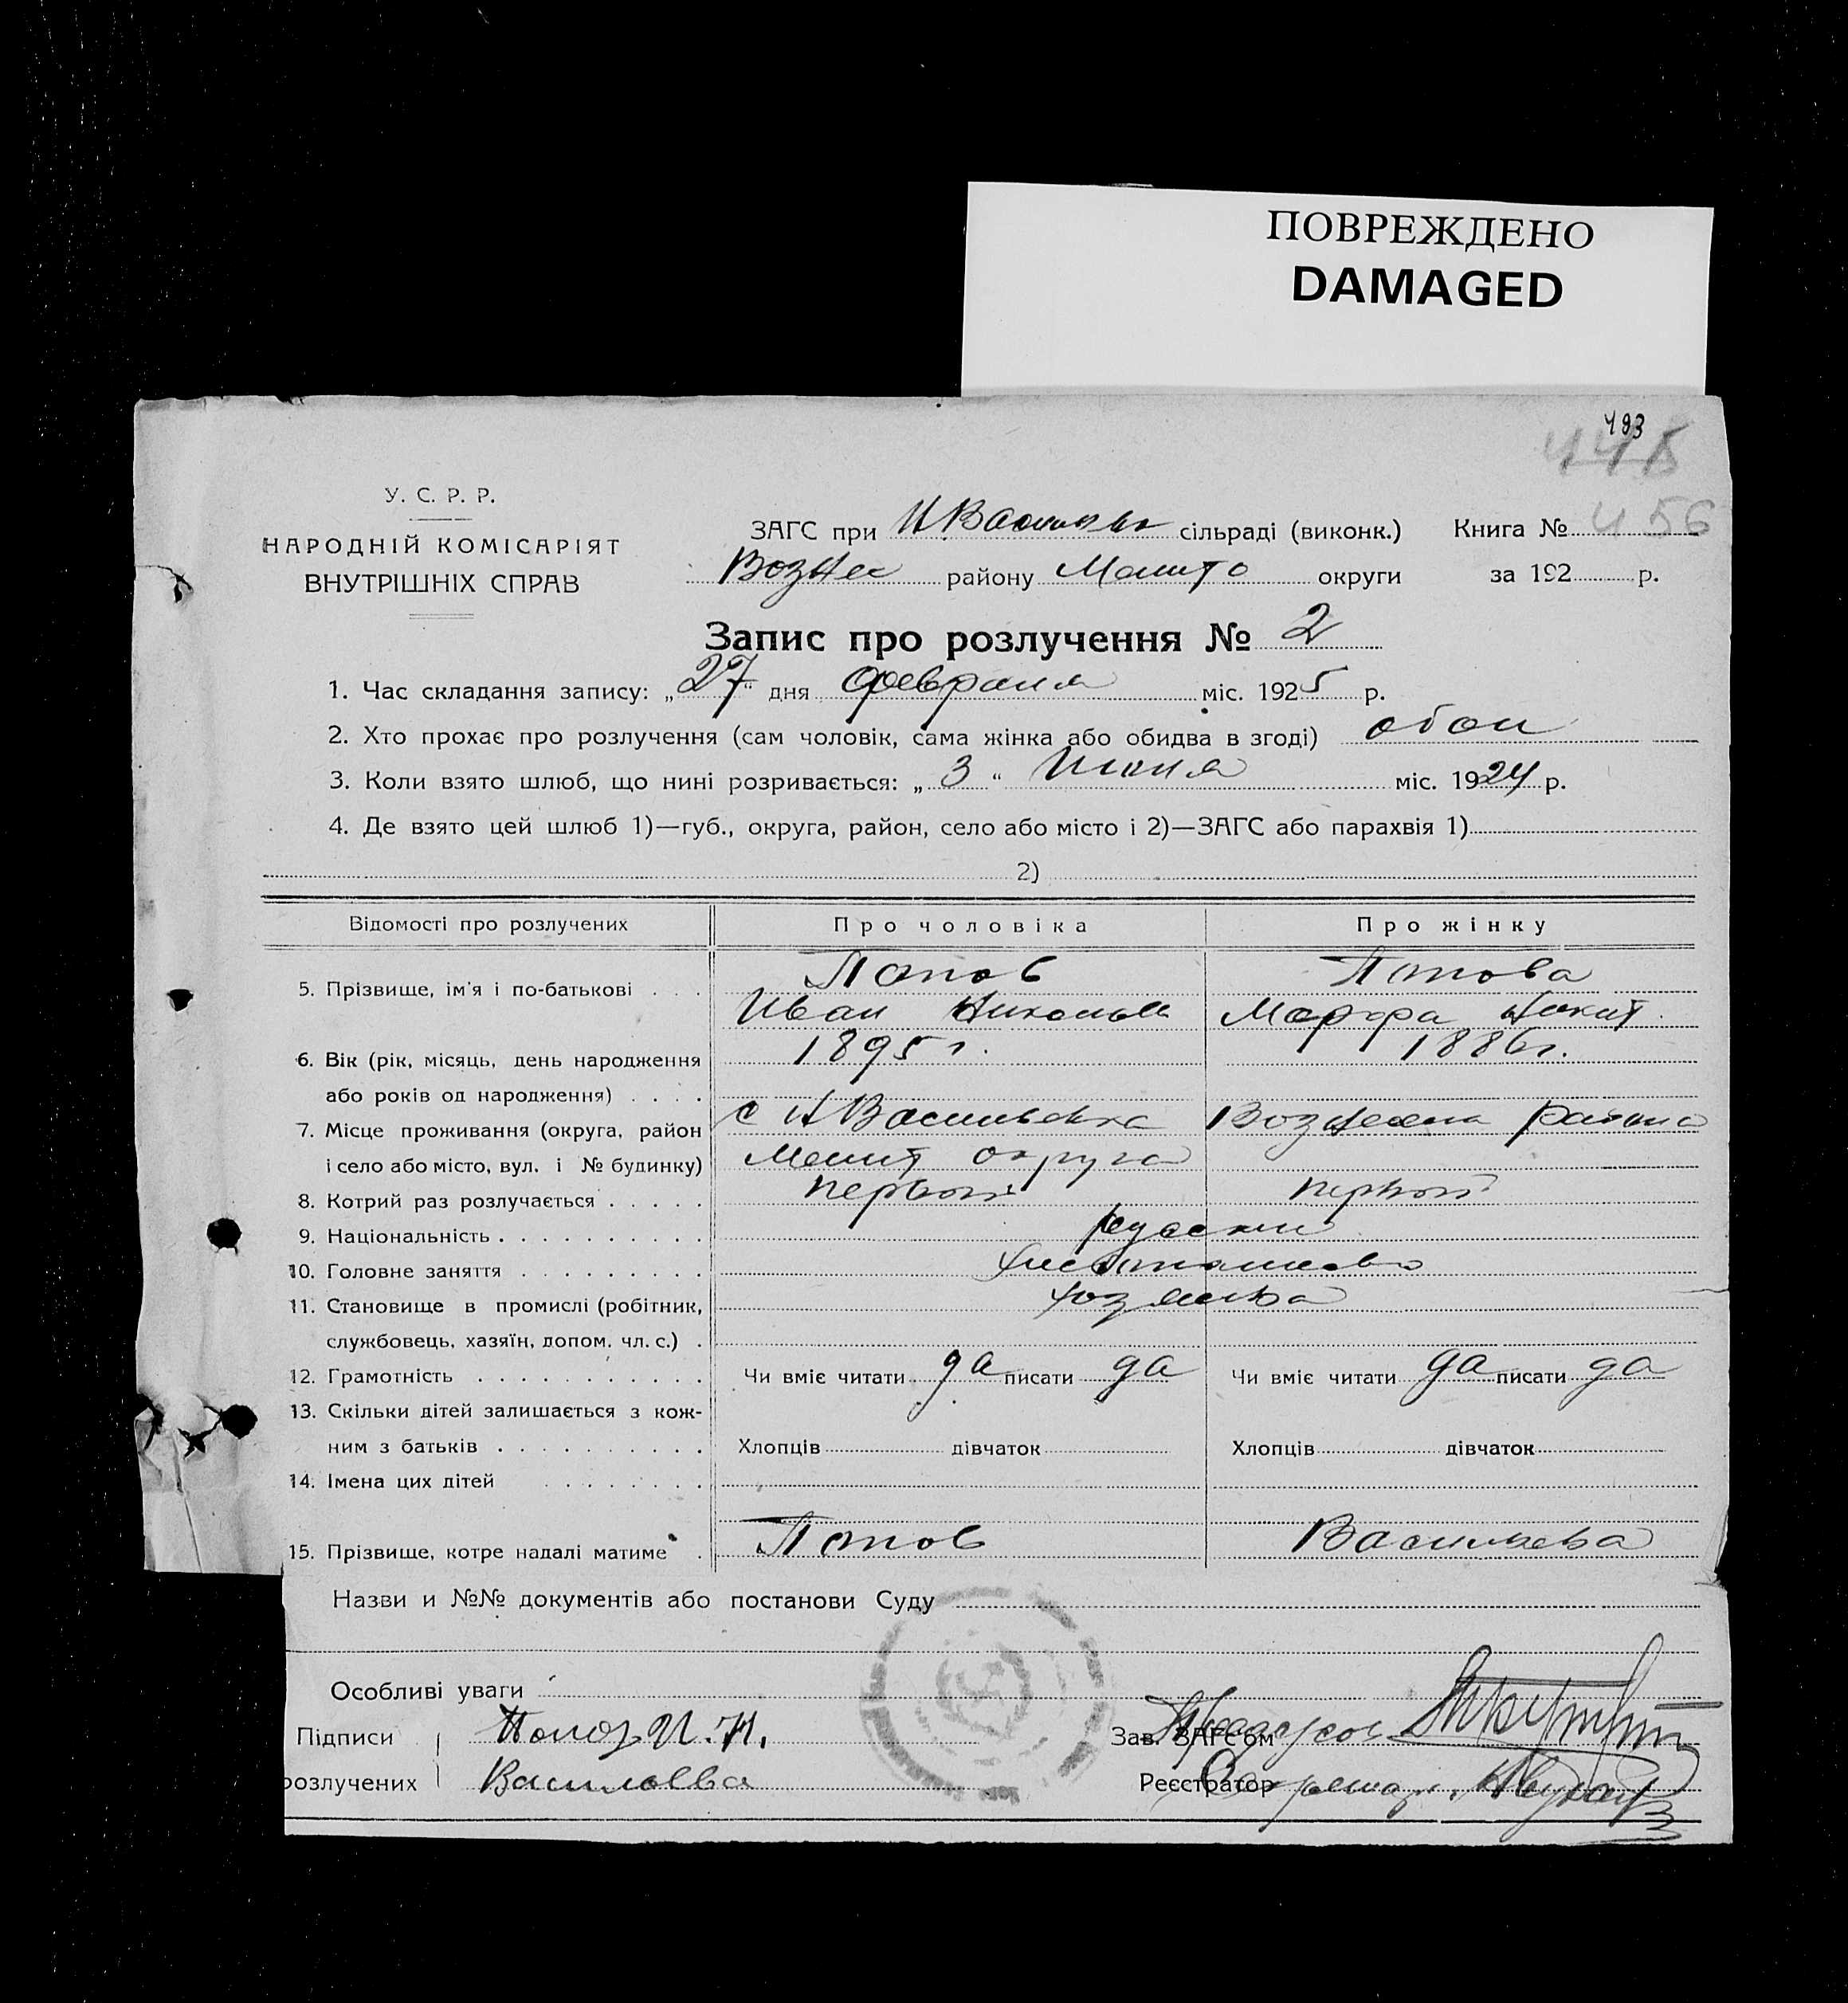 ПОВРЕЖДЕНО
DAMAGED
493
445
456
У. С. Р. Р.
НАРОДНІЙ КОМІСАРІЯТ
ВНУТРІШНІХ СПРАВ
ЗАГС при Н Васильев сільраді (виконк.) Книга №
Вознес району Мелито округи за 192 р.
Запис про розлучення № 2
1. Час складання запису: „27“ дня февраля міс. 1925 р.
2. Хто прохає про розлучення (сам чоловік, сама жінка або обидва в згоді) обои
3. Коли взято шлюб, що нині розривається: „3“ Июня міс. 1924 р.
4. Де взято цей шлюб 1)—губ., округа, район, село або місто і 2)—ЗАГС або парахвія 1)
2)
Відомості про розлучених Про чоловіка Про жінку
5. Прізвище, ім'я і по-батькові Попов Попова
Иван Николаев Марфа Никит.
6. Вік (рік, місяць, день народження 1895 г. 1886 г.
або років од народження)
7. Місце проживання (округа, район с Н Васильевка Вознесен района
і село або місто, вул. і № будинку) Мелит округа
8. Котрий раз розлучається первый первый
9. Національність русски
10. Головне заняття хлебопашество
11. Становище в промислі (робітник, хозяева
службовець, хазяїн, допом. чл. с.)
12. Грамотність Чи вміє читати да писати да Чи вміє читати да писати да
13. Скільки дітей залишається з кож-
ним з батьків Хлопців дівчаток Хлопців дівчаток
14. Імена цих дітей
15. Прізвище, котре надалі матиме Попов Васильева
Назви и №№ документів або постанови Суду
Особливі уваги
Підписи И. Н. Зав. ЗАГС'ом
розлучених Васильева Реєстратор